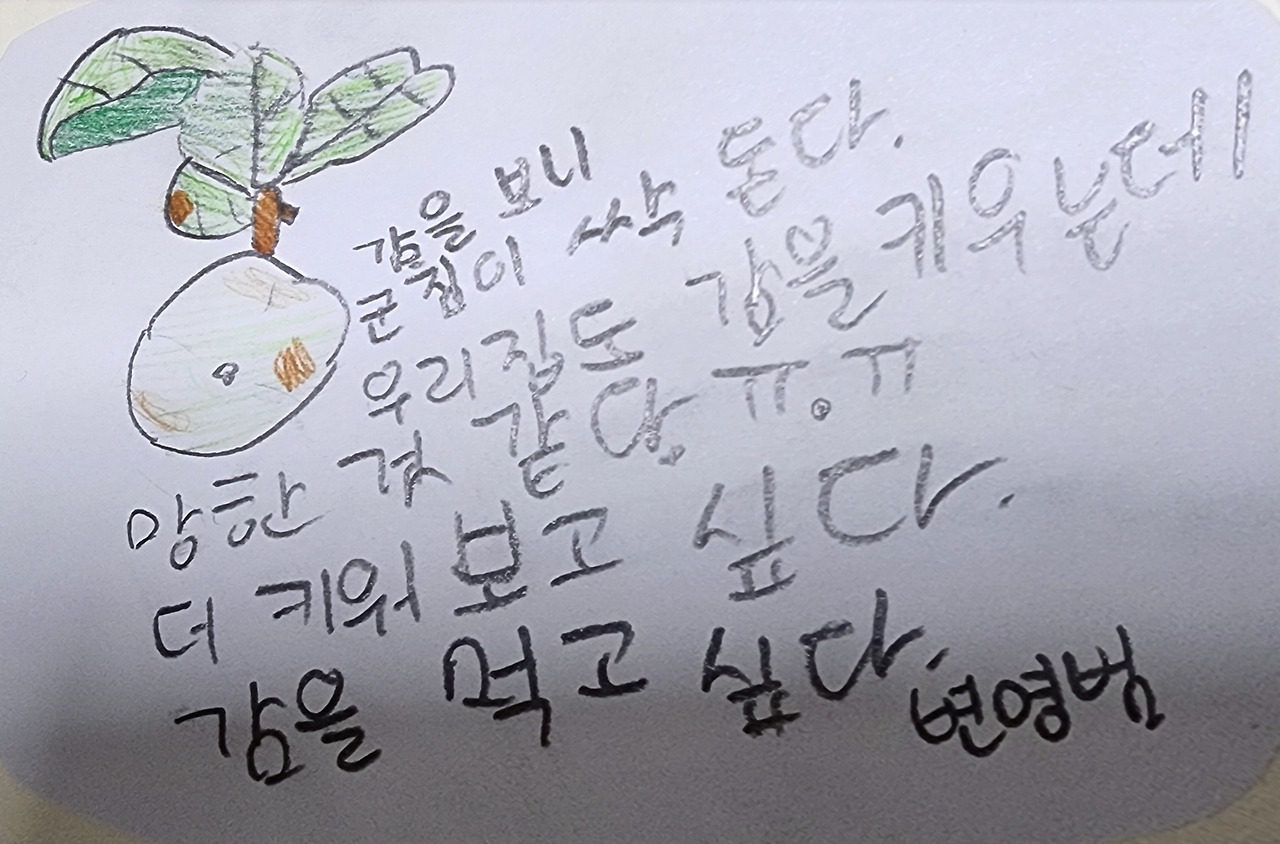 감을 보니
군침이 싸악 돈다.
우리집도 감을 키우는데
망한 것 같당. ㅠ.ㅠ
더 키워보고 싶다.
감을 먹고 싶다.
변영범